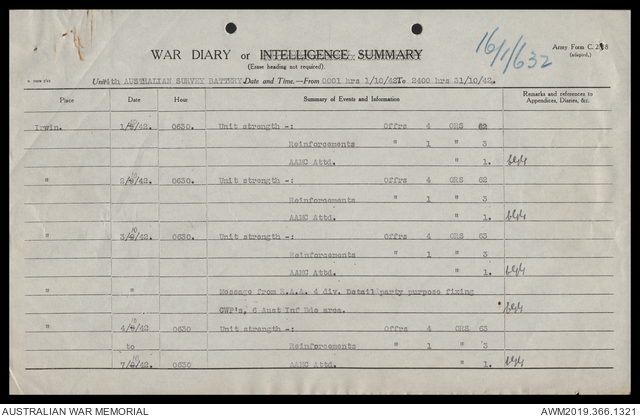 WAR DIARY or INTELLIGENCE SUMMARY
(Erase heading not required).
16/1/632
Army Form C. 2118
(adapted.)
Unit 4th AUSTRALIAN SURVEY BATTERY. Date and Time.—From 0001 hrs 1/10/42. To 2400 hrs 31/10/42.
Place Date Hour Summary of Events and Information Remarks and references to Appendices, Diaries, &c.
Irwin. 1/10/42. 0630. Unit strength -: Offrs 4 ORS 62
Reinforcements " 1 " 3
AAMC Attd. " 1.
" 2/10/42. 0630. Unit strength -: Offrs 4 ORS 62
Reinforcements " 1 " 3
AAMC Attd. " 1.
" 3/10/42. 0630. Unit strength -: Offrs 4 ORS 63
Reinforcements " 1 " 3
AAMC Attd. " 1.
" " Message from R.A.A. 4 div. Detail party purpose fixing
GWP's, 6 Aust Inf Bde area.
" 4/10/42 0630 Unit strength -: Offrs 4 ORS 63
to Reinforcements " 1 " 3
7/10/42. 0630 AAMC Attd. " 1.
AUSTRALIAN WAR MEMORIAL
AWM2019.366.1321